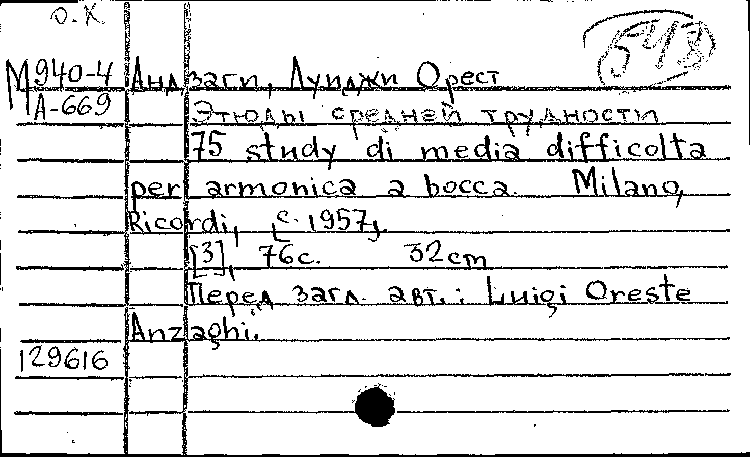 О.Х
548
М940-4 Андзаги, Луиджи Орест
А-669 Этюды средней трудности
75 study di media difficolta
per armonica a bocca. Milano,
Ricordi, [с. 1957].
[3], 76с. 32cm
Перед загл. авт.: Luigi Oreste
Anzaghi.
129616